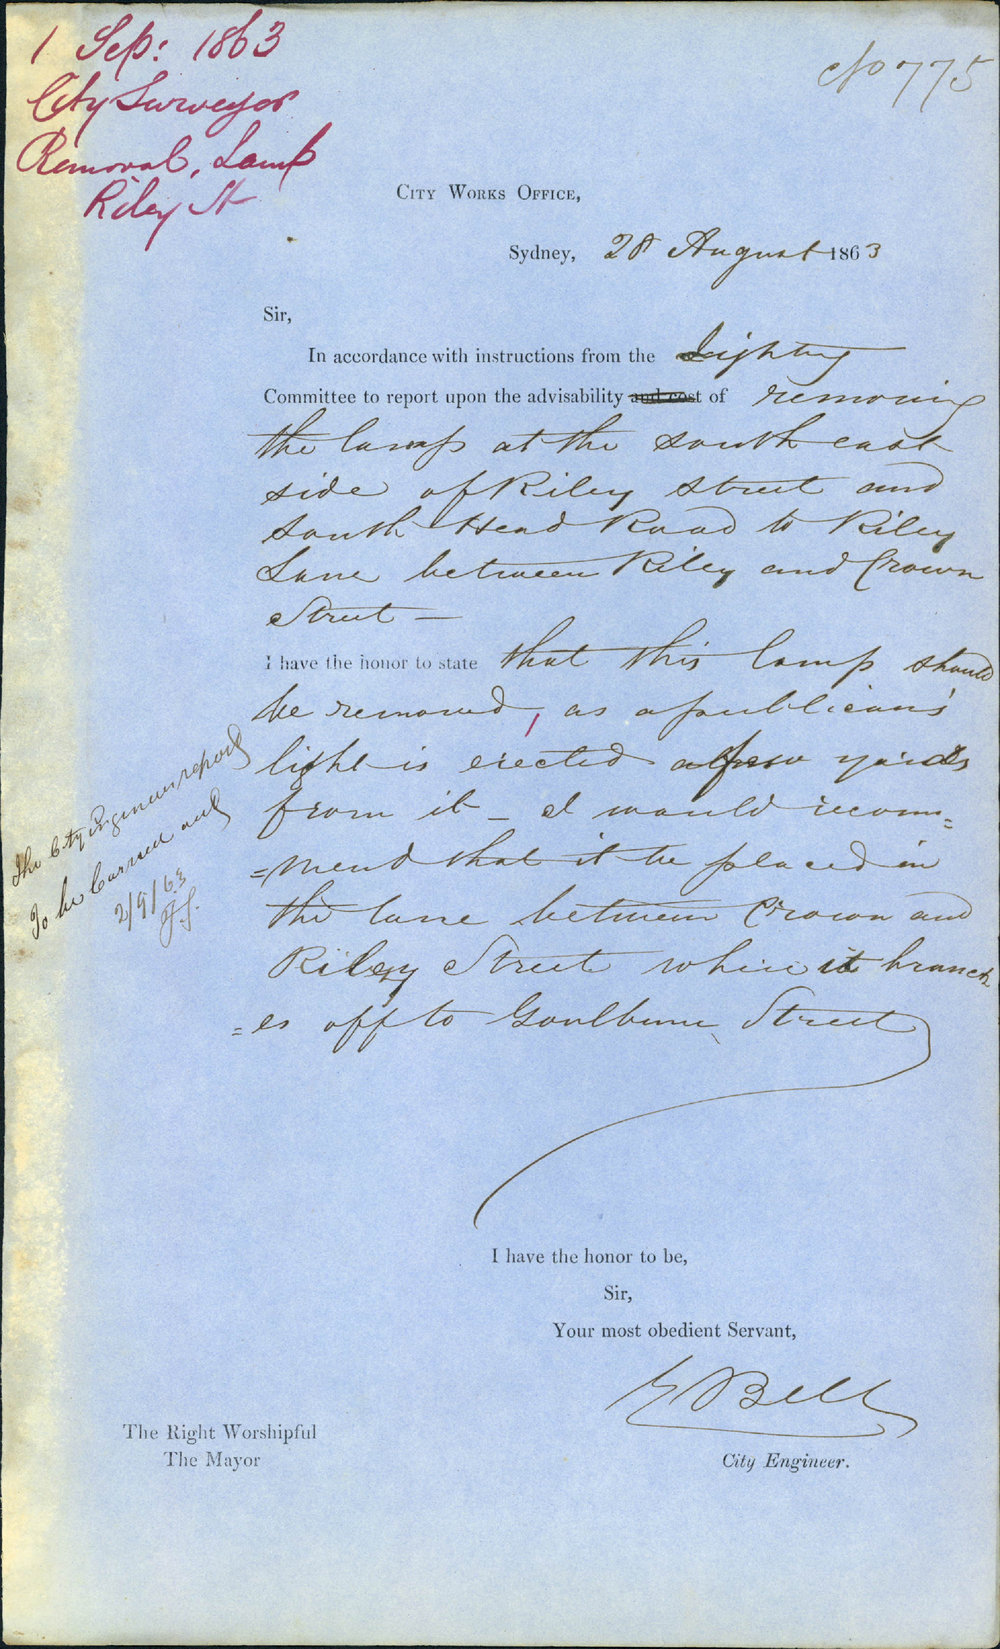 1 Sep: 1863
City Surveyor
Removal, Lamp
Riley St
No 775
City Works Office,
Sydney, 28 August 1863
Sir,
In accordance with instructions from the Lighting
Committee to report upon the advisability and cost of removing
the lamp at the south east
side of Riley street and
South Head Road to Riley
Lane between Riley and Crown
Street —
I have the honor to state that this lamp should
be removed, as a publican's
light is erected a few yards
from it — I would recom=
=mend that it be placed in
the lane between Crown and
Riley Street where it branch
=es off to Goulburne Street
The City Engineers report
To be Carried out
2/9/63
I have the honor to be,
Sir,
Your most obedient Servant,
E Bell
City Engineer.
The Right Worshipful
The Mayor